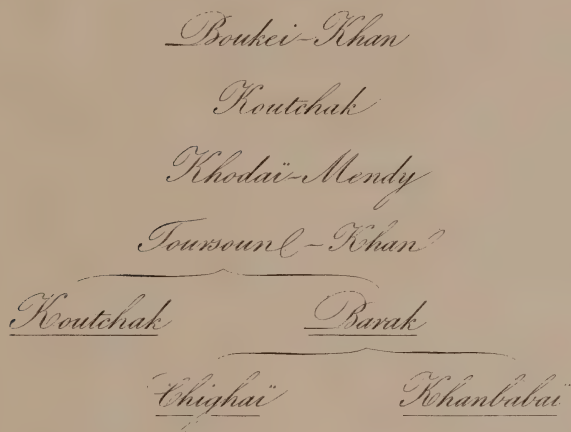 Boukei-Khan
Koutchak
Khodaï-Mendy
Toursoun-Khan
Koutchak Barak
Chighaï Khanbabaï